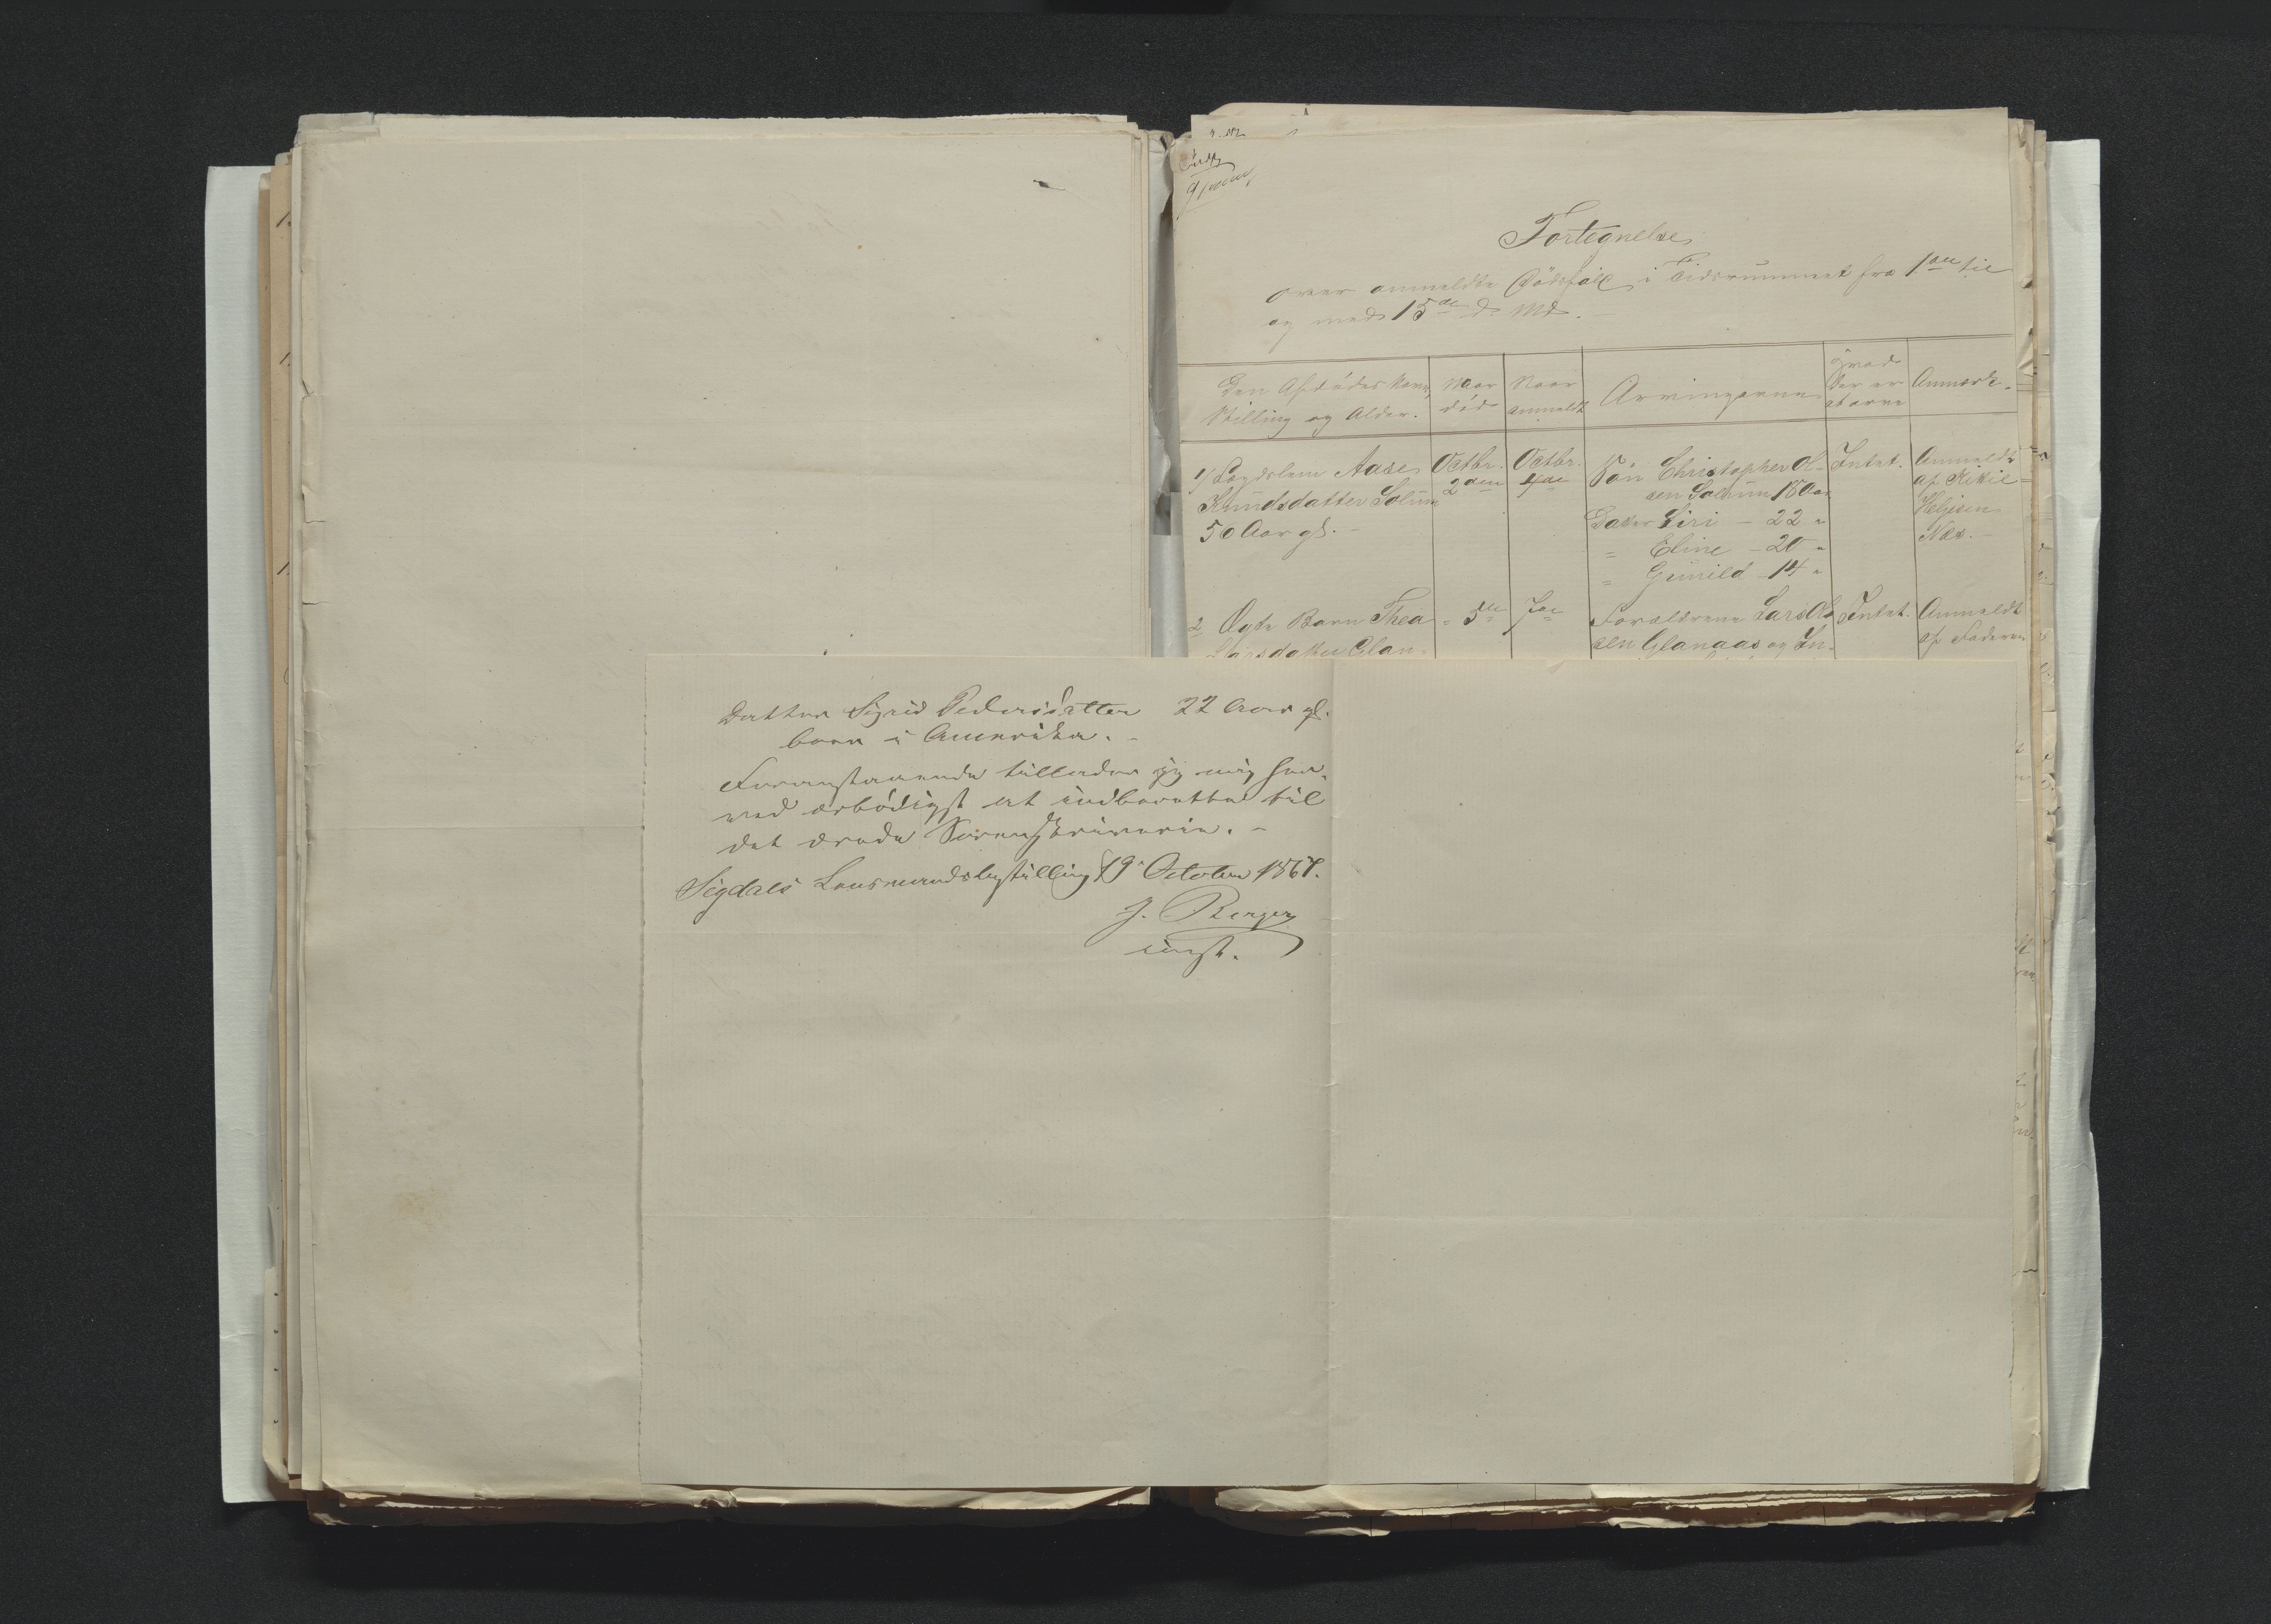 Fortegnelse
over anmeldte Dödsfald i Tidsrummet fra 1ste til
og med 15de d. Md.
Den Afdödes Navn,
Stilling og Alder.
Naar
död
Naar
anmeldt
Arvingerne
Hvad
der er
at arve
Anmærk.
1/ Lægdslem Aase
Knudsdatter Solum
50 Aar gl. -
Octbr.
2den
Octbr.
4de
Sön Christopher Ol-
sen Solum 18 Aar
Datter Siri - 22 "
" Eline - 20 "
" Gunild - 14 "
Intet.
Anmeldt
af Kittil
Helgesen
Næs. -
2 Ægte Barn Thea
Larsdatter Glan-
" 5te
7de
Forældrene Lars Ol-
sen Glanaas og In-
Intet.
Anmeldt
af Faderen
Datter Sigrid Pedersdatter 22 Aar gl.
boer i Amerika. -
Foranstaaende tillader jeg mig her-
ved ærbödigst at indberette til
det ærede Sorenskriverie. -
Sigdals Lensmandsbestilling 19 October 1867.
J. Berger
cnst.